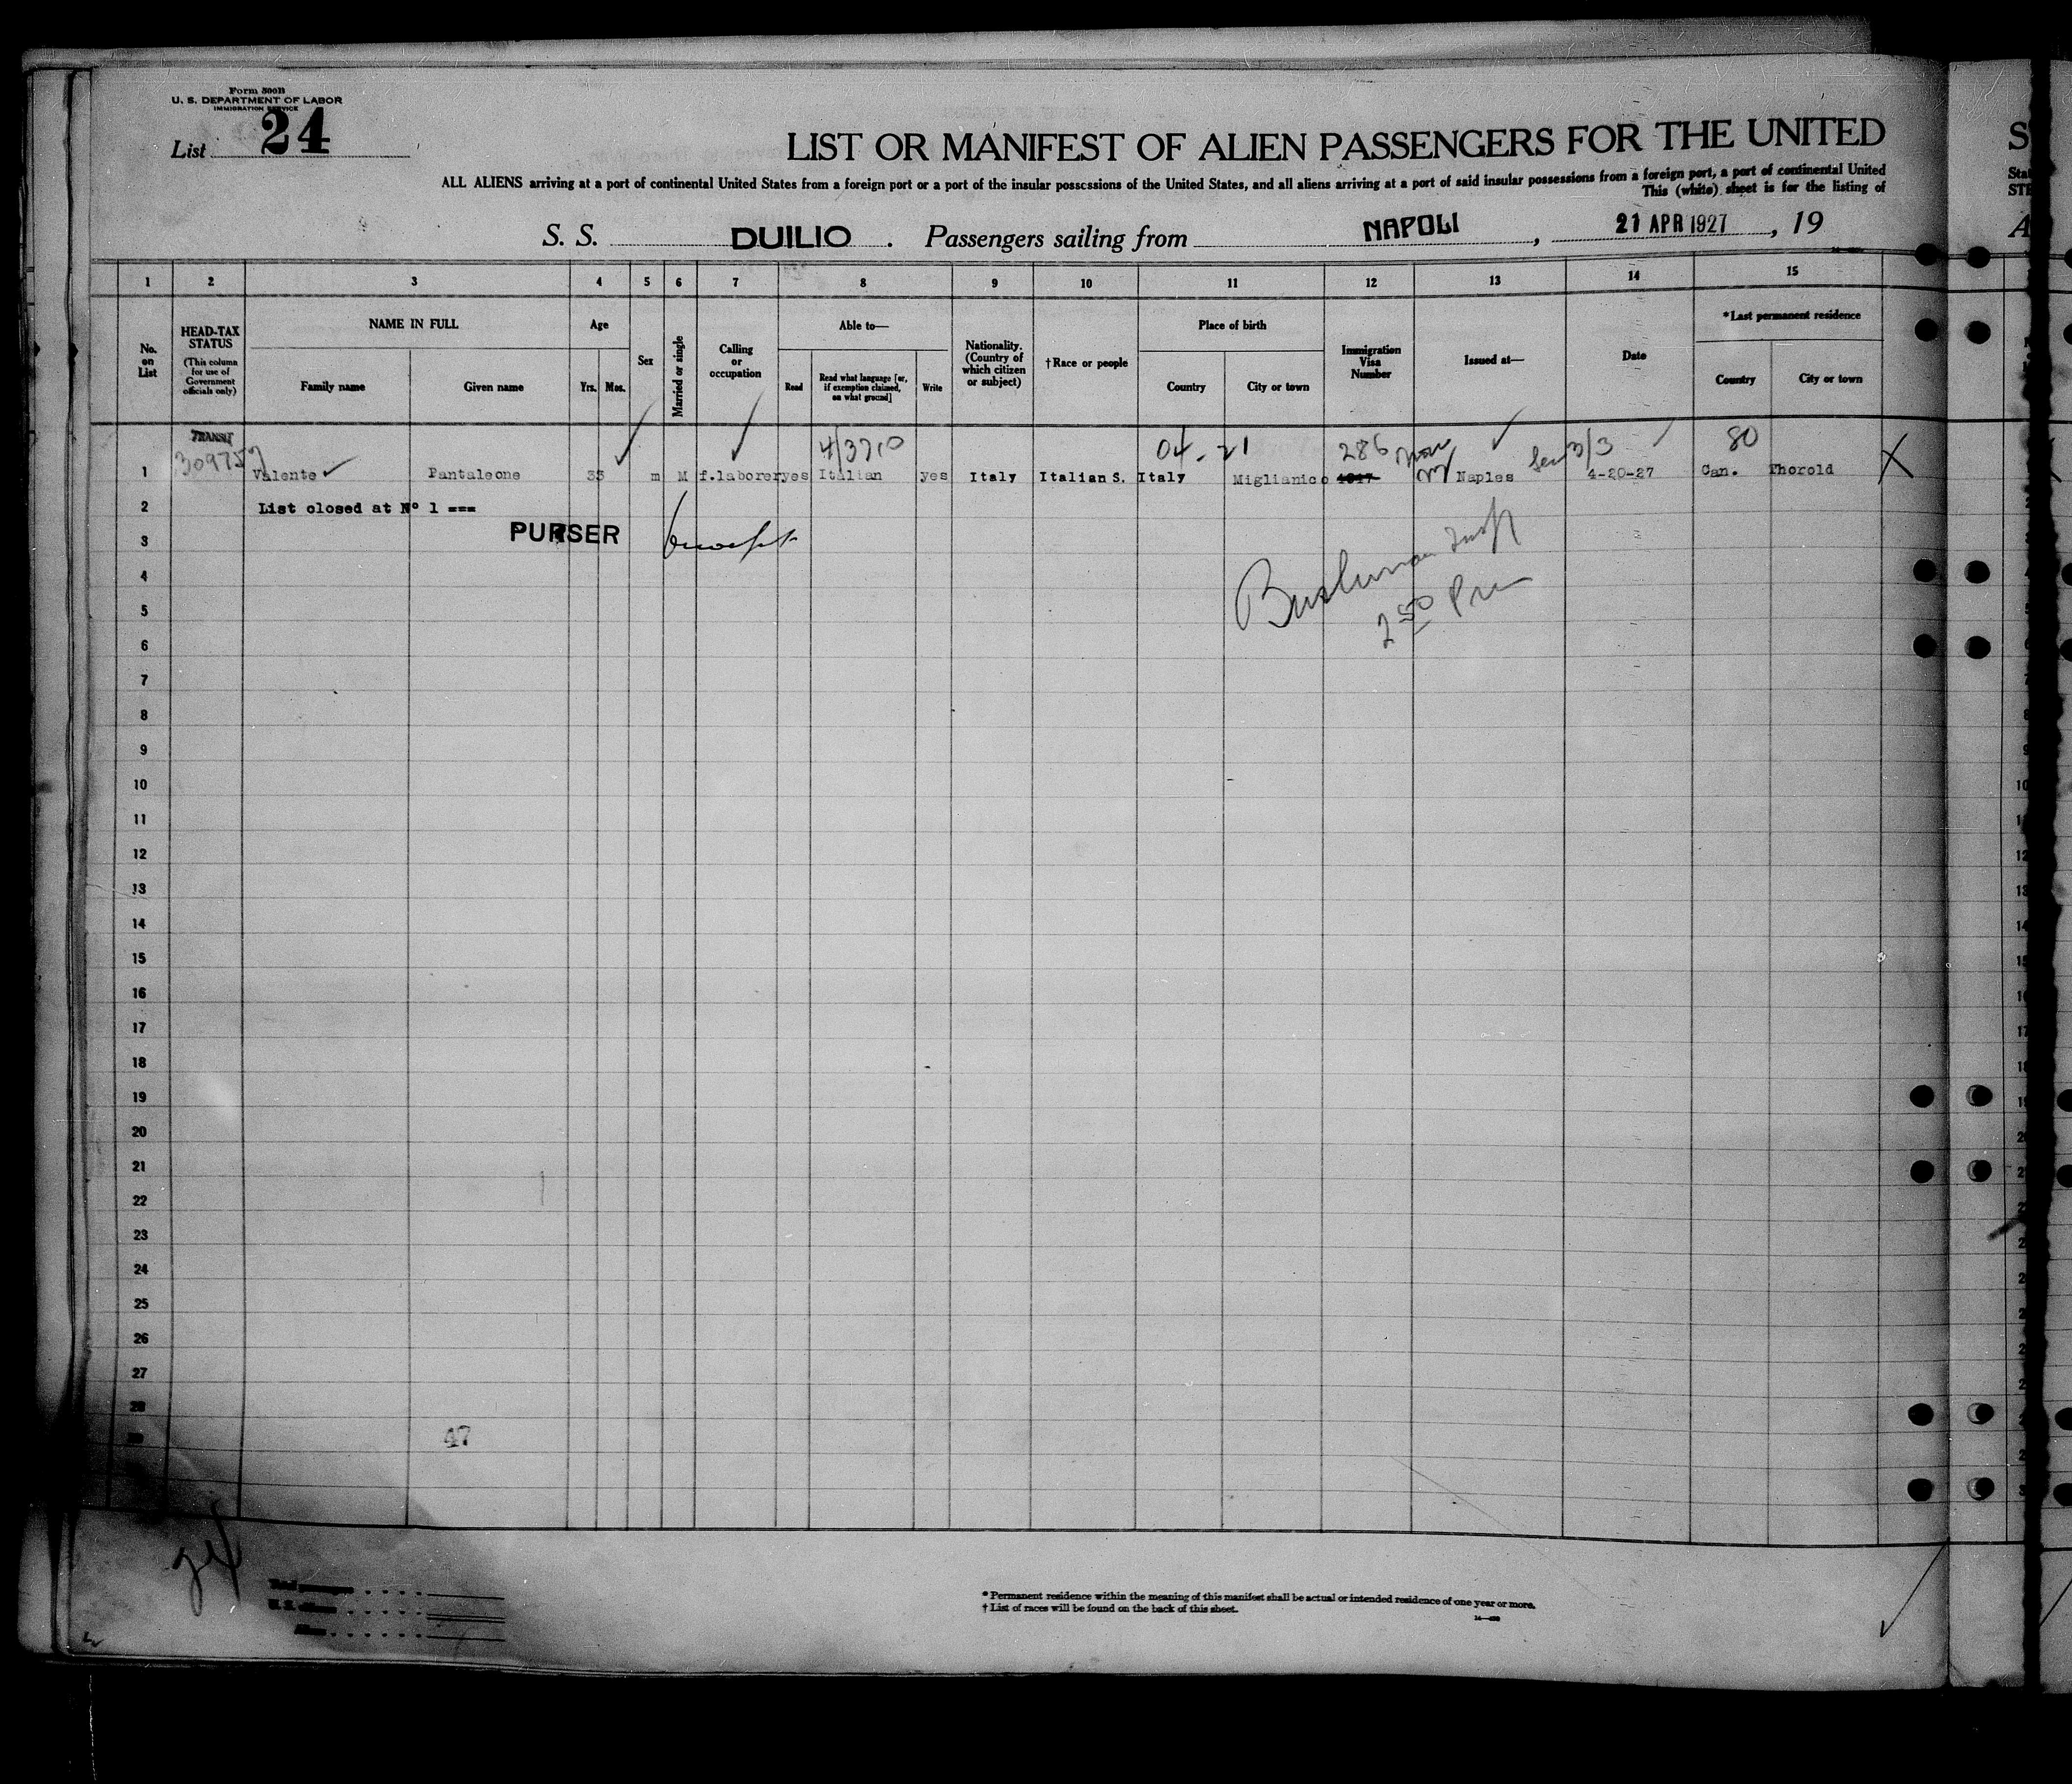 Form 500B
U. S. DEPARTMENT OF LABOR
IMMIGRATION SERVICE
List 24
LIST OR MANIFEST OF ALIEN PASSENGERS FOR THE UNITED
ALL ALIENS arriving at a port of continental United States from a foreign port or a port of the insular possessions of the United States, and all aliens arriving at a port of said insular possessions from a foreign port, a port of continental United
This (white) sheet is for the listing of
S. S. DUILIO . Passengers sailing from NAPOLI , 21 APR 1927 , 19
1 2 3 4 5 6 7 8 9 10 11 12 13 14 15
No. on List
HEAD-TAX STATUS
(This column for use of Government officials only)
NAME IN FULL
Family name
Given name
Age
Yrs. Mos.
Sex
Married or single
Calling or occupation
Able to—
Read
Read what language [or, if exemption claimed, on what ground]
Write
Nationality. (Country of which citizen or subject)
†Race or people
Place of birth
Country
City or town
Immigration Visa Number
Issued at—
Date
*Last permanent residence
Country
City or town
TRANSIT
4/3710 04-21 286 3/3 80
1 Valente Pantaleone 33 m M f.laborer yes Italian yes Italy Italian S. Italy Miglianico Naples 4-20-27 Can. Thorold X
2 List closed at Nº 1 ===
3 PURSER
4
5
2 50
6
7
8
9
10
11
12
13
14
15
16
17
18
19
20
21
22
23
24
25
26
27
28
29
47
Total passengers
U. S. citizens
Aliens
* Permanent residence within the meaning of this manifest shall be actual or intended residence of one year or more.
† List of races will be found on the back of this sheet.